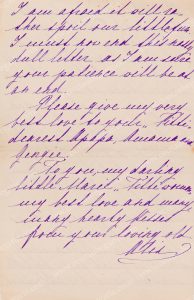 I am afraid it will ra
ther spoil our
I must now end this
dull letter as I am sure
your patience will be at
an end.
Please give my very
best love to
dearest Apapa, Amama
To you, my darling
little
my best love and many
many hearty kisses
from your loving old